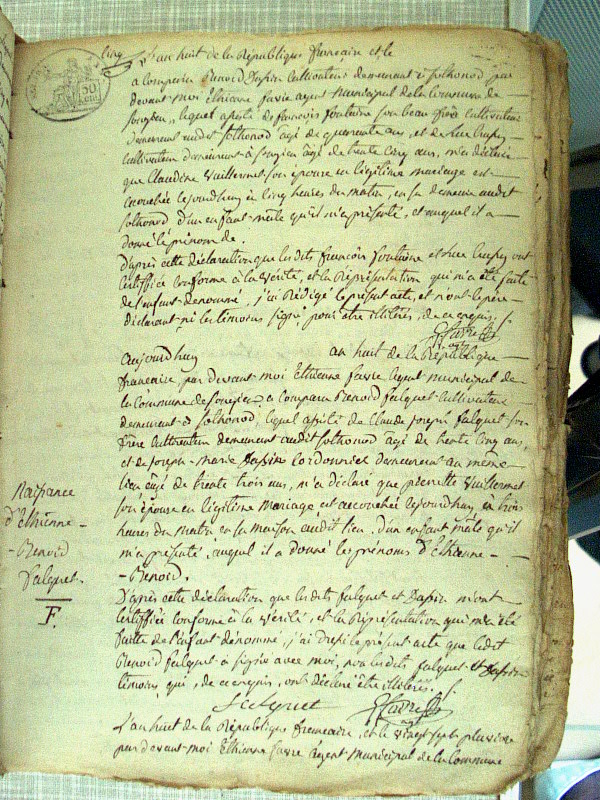 cinq
L'an huit de la République française et le
a comparu Benoid Dapin cultivateur demeurant à Solhonod, par
devant moi Ethienne favre agent municipal de la Commune de
Songieu, lequel assisté de francois fontaine son beau frère cultivateur
demeurant audit Solhonod agé de quarente ans, et de Luc
cultivateur demeurant à Songieu âgé de trente cinq ans, m'a déclaré
que Claudine Vuillermet son épouse en légitime mariage est
accouchée lejourdhuy à cinq heures du matin, en sa demeure audit
Solhonod d'un enfant mâle qu'il m'a présenté, et auquel il a
donné le prénom de.
D'après cette déclaration que lesdits francois fontaine et Luc ont
certiffiée conforme à la vérité, et la Représentation qui m'a été faite
de l'enfant denommé, j'ai Rédigé le présent acte, et n'ont le père
déclarant ni les témoins signé pour être illiterés, de ce enquis ./.
favre
aujourdhuy an huit de la République
francaise, par devant moi Ethienne favre agent municipal de
la Commune de Songieu a comparu Benoid falquet cultivateur
demeurant à Solhonod, lequel assisté de Claude Joseph falquet son
frère cultivateur demeurant audit Solhonod agé de trente cinq ans,
et de Joseph-Marie Dapin Cordonnier demeurant au même
lieu agé de trente trois ans, m'a déclaré que pierrette Vuillermet
son épouse en légitime Mariage, est accouchée lejourdhuy, en trois
heures du matin en sa maison audit lieu. D'un enfant mâle qu'il
m'a présenté, auquel il a donné les prénoms d'Ethienne -
- Benoid.
Naissance
d'Ethienne -
- Benoid
falquet.
F.
D'après cette déclaration que lesdits falquet et Dapin m'ont
certiffiée conforme à la vérité, et la Représentation qui m'a été
faite de l'enfant dénommé, j'ai dressé le présent acte que ledit
Benoid falquet a signé avec moi, non lesdits falquet et Dapin
témoins qui, de ce enquis, ont déclaré être illiterés. ./.
falquet favre
L'an huit de la République francaise, et le vingt sept pluviose
par devant moi Ethienne favre agent municipal de la Commune